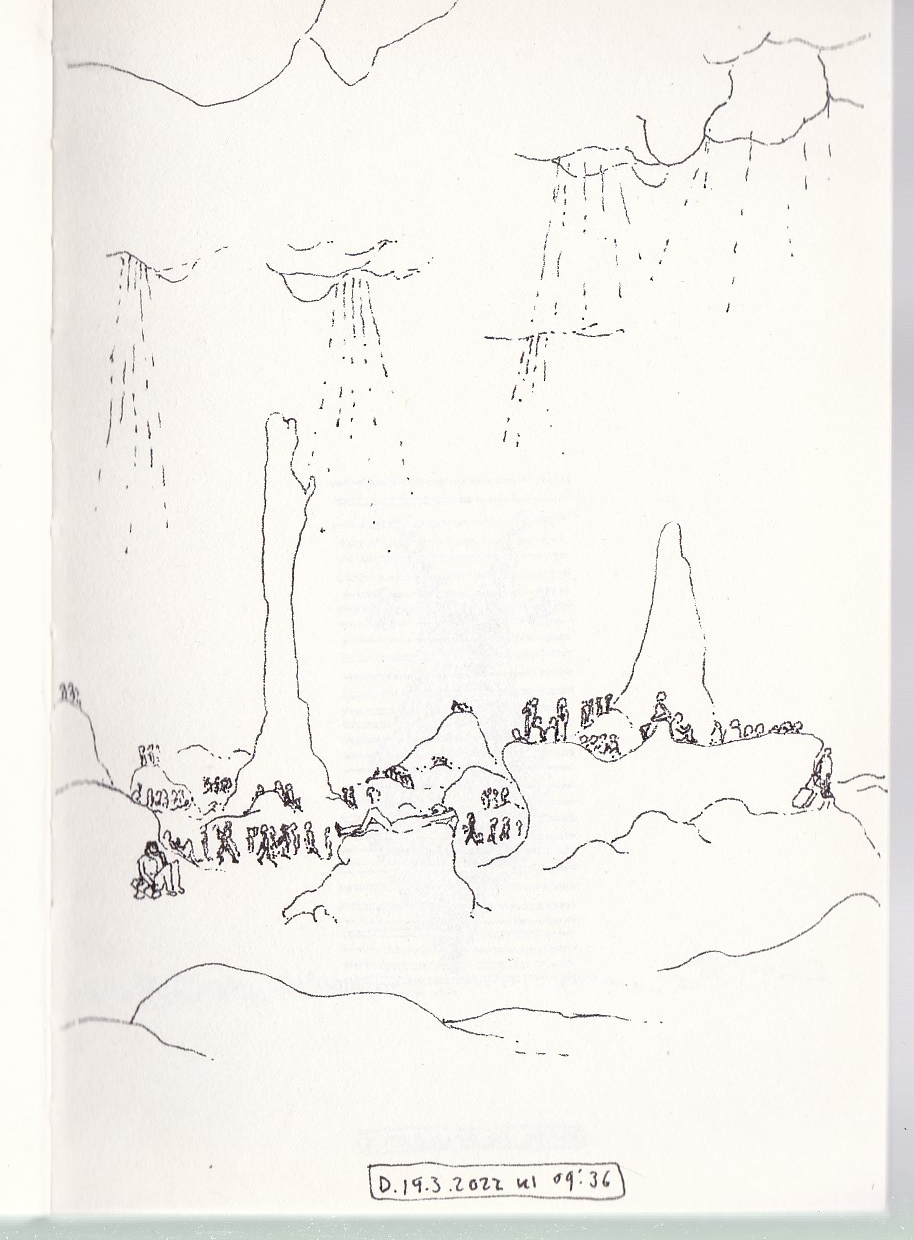 D.19.3.2022 kl 09:36